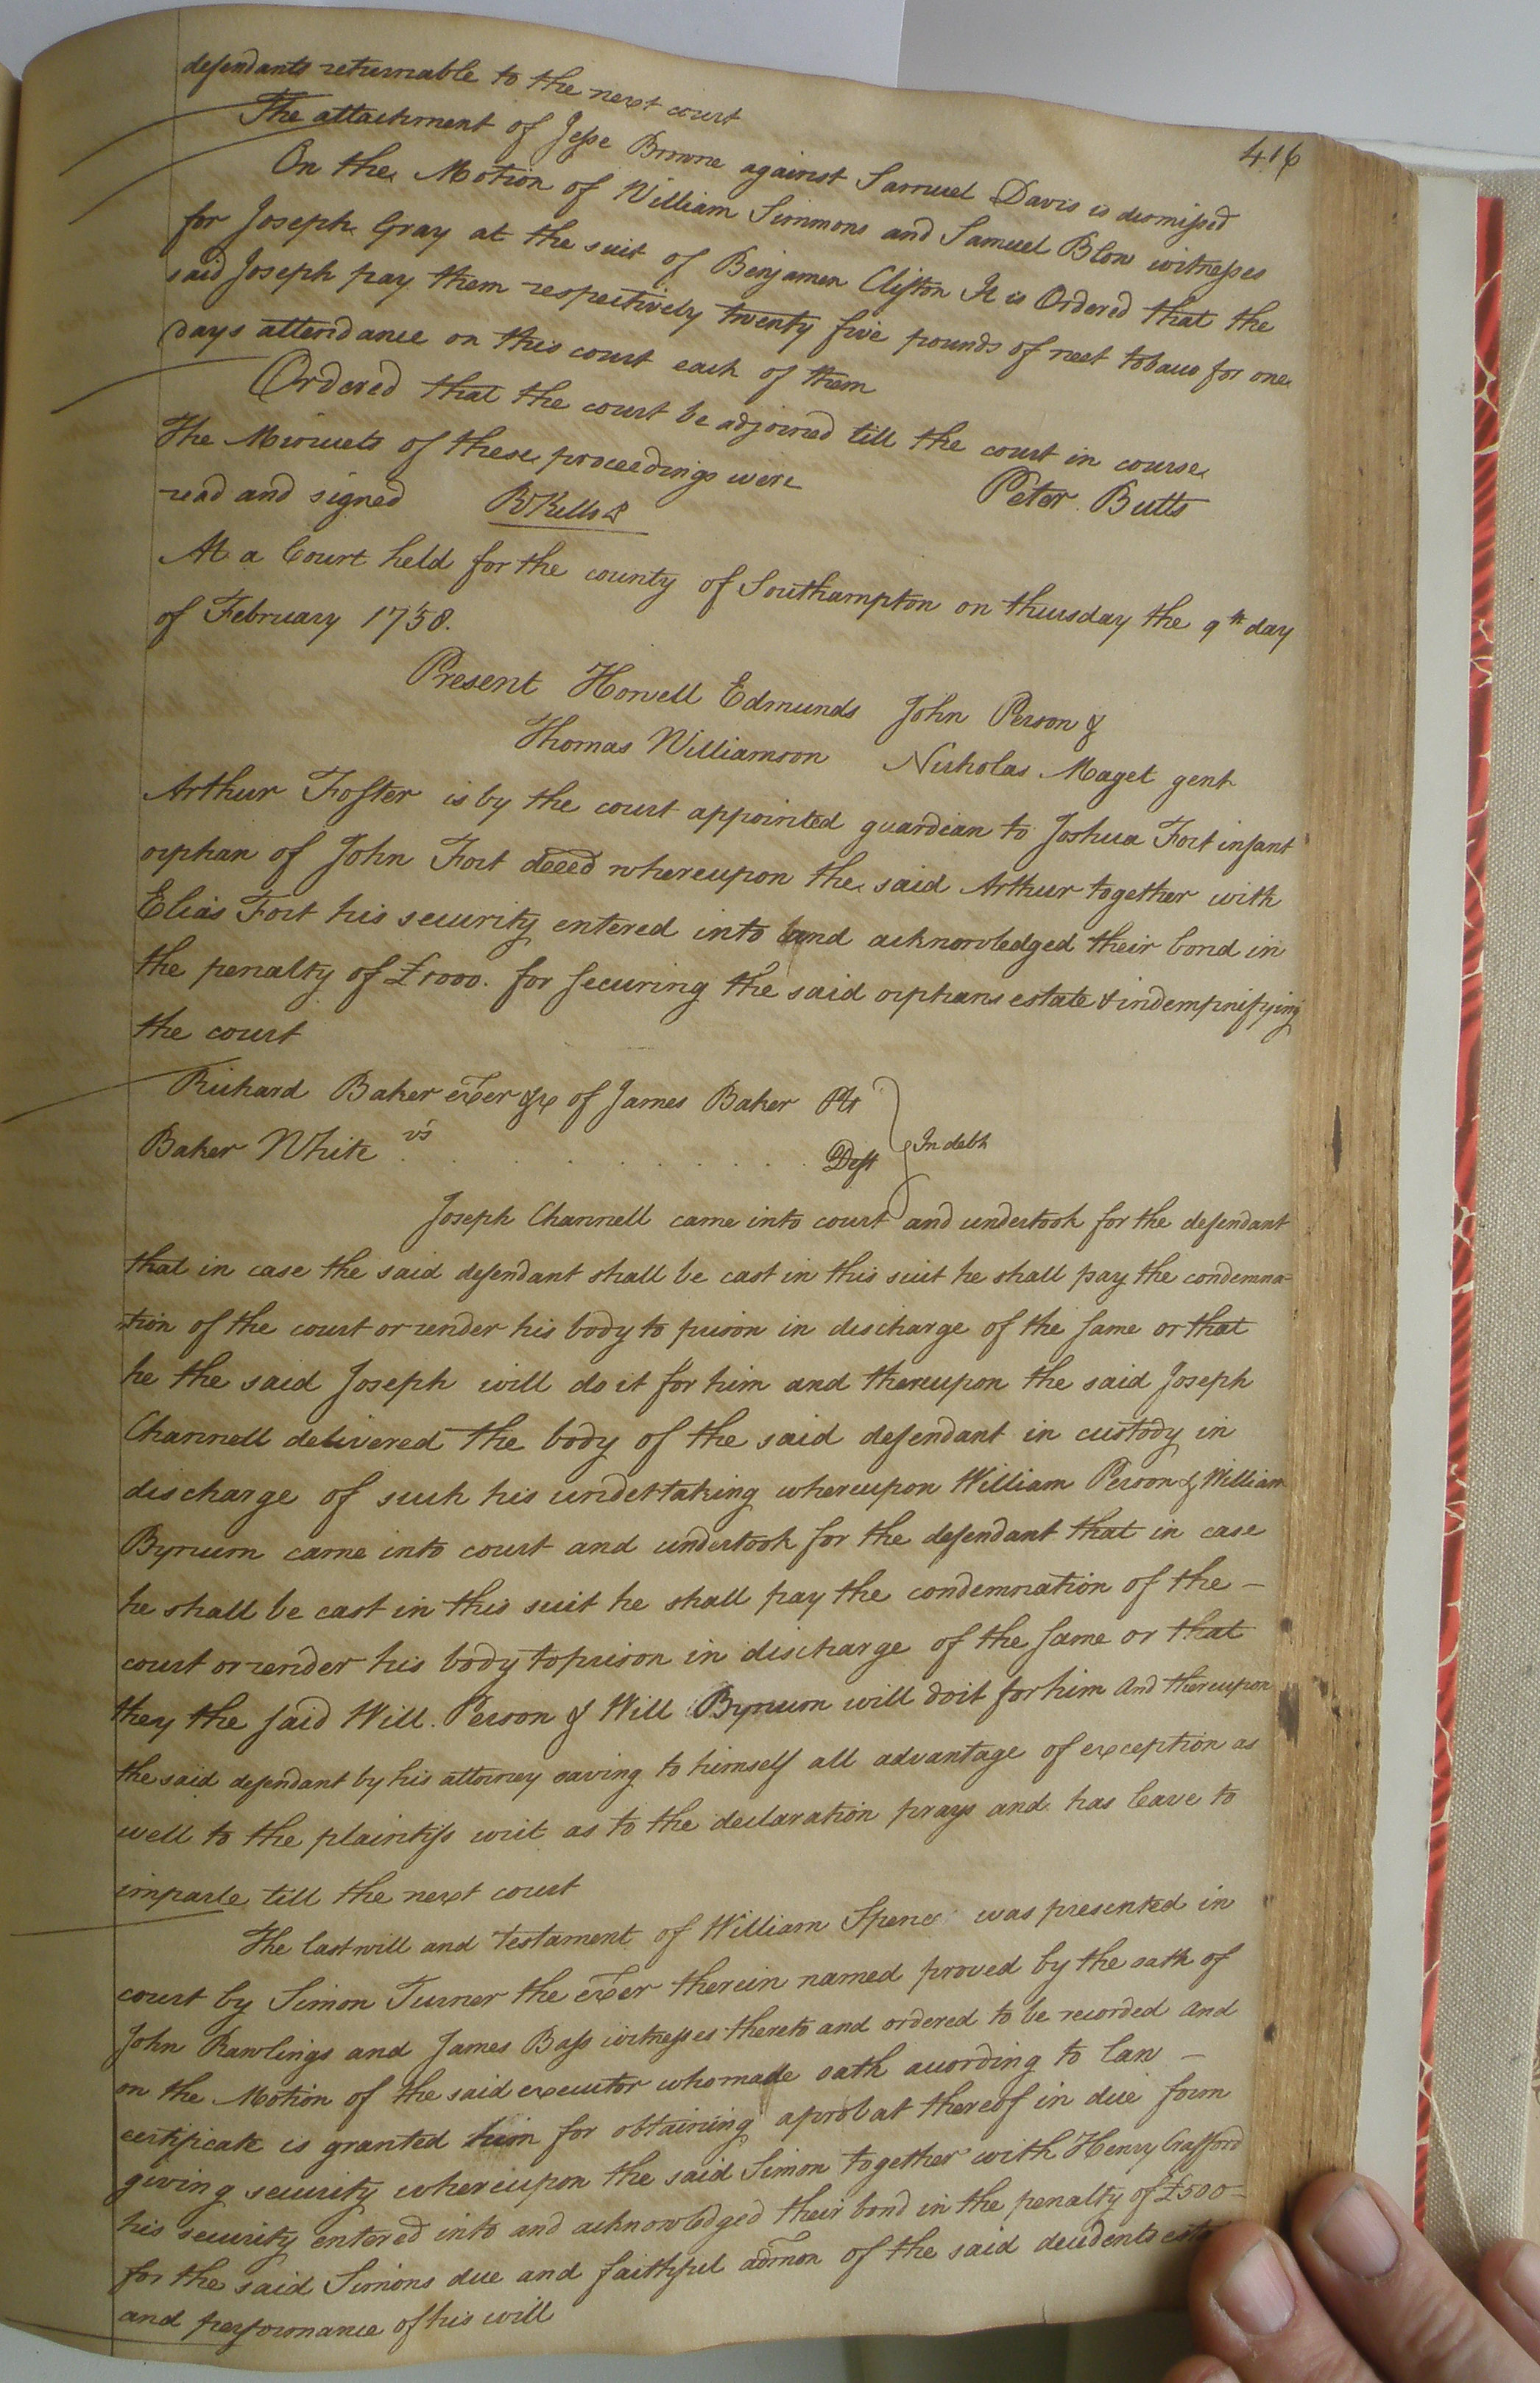 416
defendants returnable to the next court
The attachment of Jesse Browne against Samuel Davis is dismissed
On the Motion of William Simmons and Samuel Blow witnesses
for Joseph Gray at the suit of Benjamen Clifton It is Ordered that the
said Joseph pay them respectively twenty five pounds of neet tobacco for one
days attendance on this court each of them
Ordered that the court be adjoined till the court in course
The Minuets of these proceedings were
read and signed Peter Butts
At a Court held for the county of Southampton on thursday the 9th day
of February 1758.
Present Howell Edmunds John Person &
Thomas Williamson Nicholas Maget gent
Arthur Foster is by the court appointed guardian to Joshua Fort infant
orphan of John Fort deced whereupon the said Arthur together with
Elias Fort his security entered into and acknowledged their bond in
the penalty of £1000. for securing the said orphans estate & indempnifying
the court
Richard Baker exer &c of James Baker Plt
vs In debt
Baker White . . . . . . . . . Deft
Joseph Channell came into court and undertook for the defendant
that in case the said defendant shall be cast in this suit he shall pay the condemna-
tion of the court or render his body to prison in discharge of the same or that
he the said Joseph will do it for him and thereupon the said Joseph
Channell delivered the body of the said defendant in custody in
discharge of such his undertaking whereupon William Person & William
Bynum came into court and undertook for the defendant that in case
he shall be cast in this suit he shall pay the condemnation of the -
court or render his body to prison in discharge of the same or that
they the said Will. Person & Will Bynum will do it for him And thereupon
the said defendant by his attorney saving to himself all advantage of exception as
well to the plaintifs writ as to the declaration prays and has leave to
imparle till the next court
The last will and testament of William Spence was presented in
court by Simon Turner the exer therein named proved by the oath of
John Rawlings and James Bass witnesses thereto and ordered to be recorded and
on the Motion of the said executor who made oath according to law -
certificate is granted him for obtaining a probat thereof in due form
giving security whereupon the said Simon together with Henry Crafford
his security entered into and acknowledged their bond in the penalty of £500-
for the said Simons due and faithful admon of the said decedents
and performance of his will